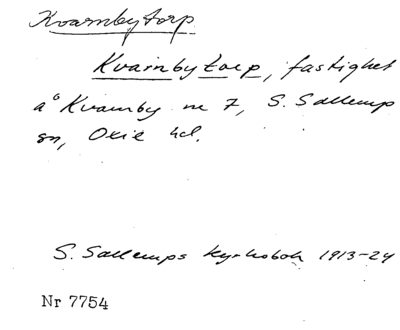 Kvarnbytorp
Kvarnbytorp, fastighet
å Kvarnby nr 7, S. Sallerups
sn, Oxie hd.
S. Sallerups kyrkobok 1913-24
Nr 7754